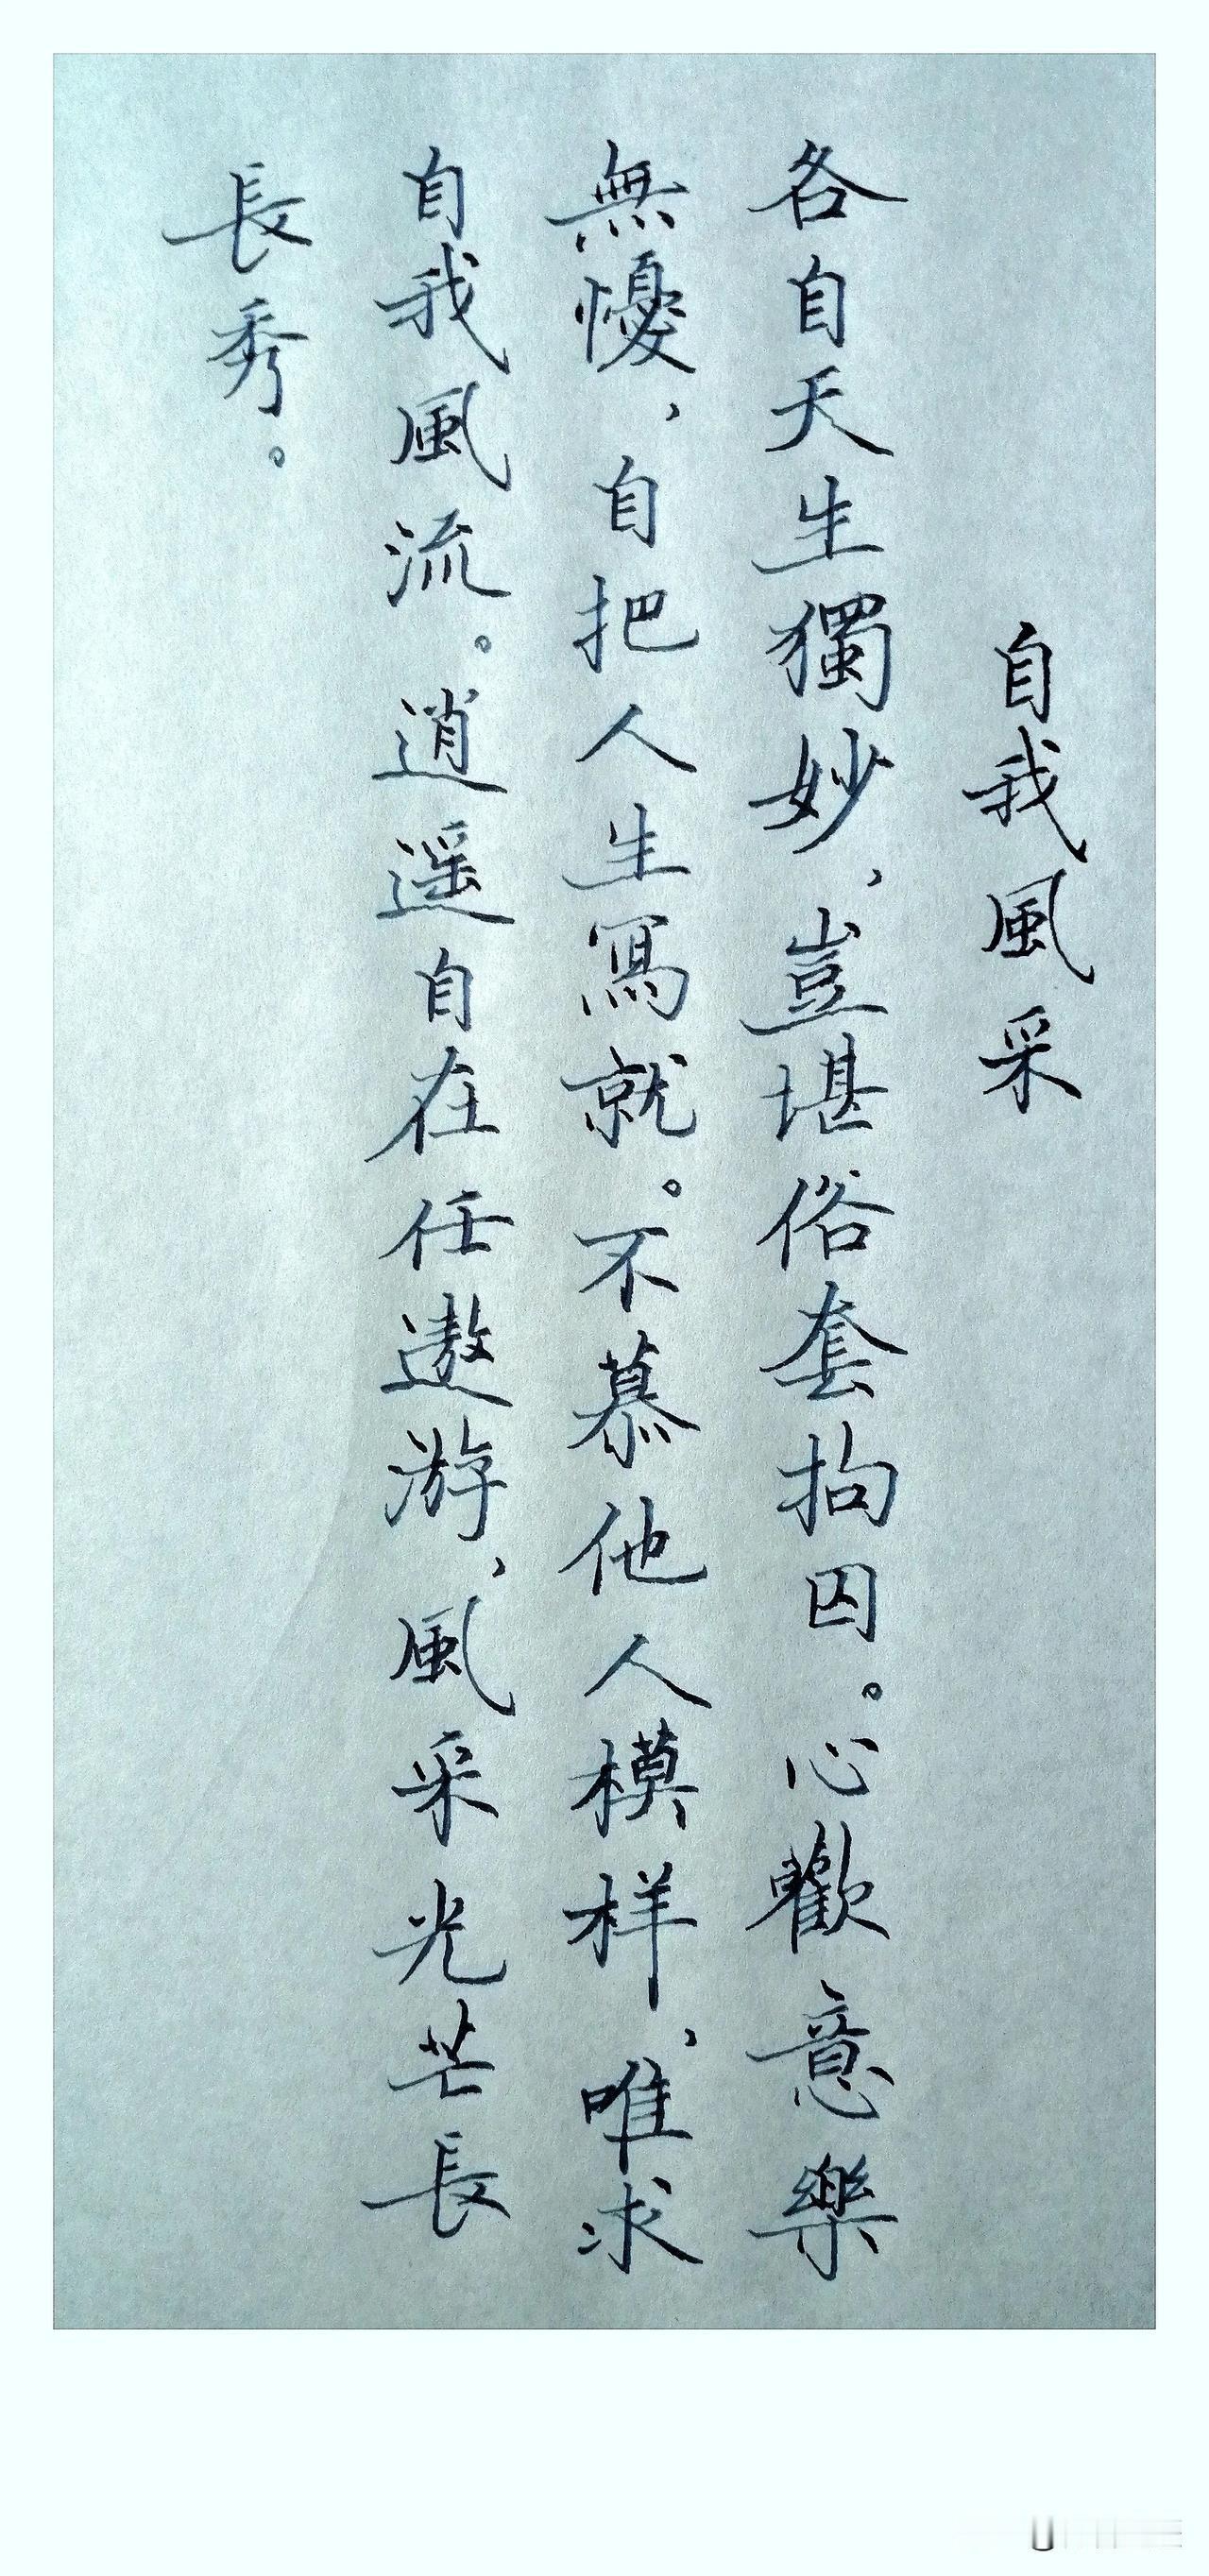 自我風采
各自天生獨妙、豈堪俗套拘囚。心歡意樂
無懮、自把人生寫就。不慕他人模样、唯求
自我風流。逍遥自在任遨游、風采光芒長
長秀。